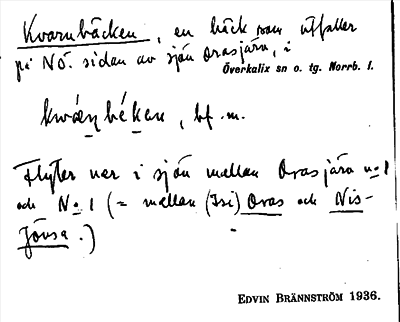 Kvarnbäcken, en bäck som utfaller
på NÖ. sidan av sjön Orasjärv, i
Överkalix sn o. tg. Norrb. l.
bf. m.
Flyter ner i sjön mellan Orasjärv n:o 1
och N:o 1 (= mellan (Isi) Oras och Nis-
Jönsa.)
EDVIN BRÄNNSTRÖM 1936.